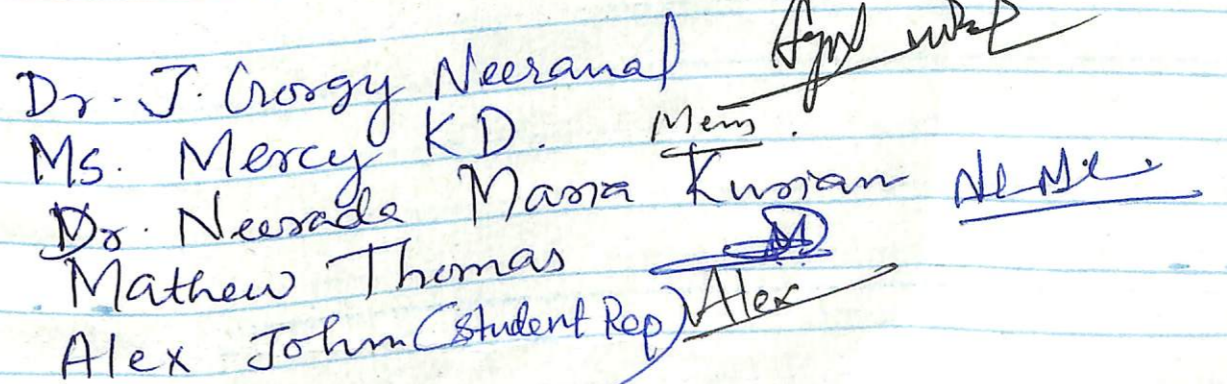 Dr. J. Giorgy Neeranal
Ms. Mercy KD. Mem.
Dr. Neerada Maria Kurian
Mathew Thomas
Alex John (Student Rep) Alex